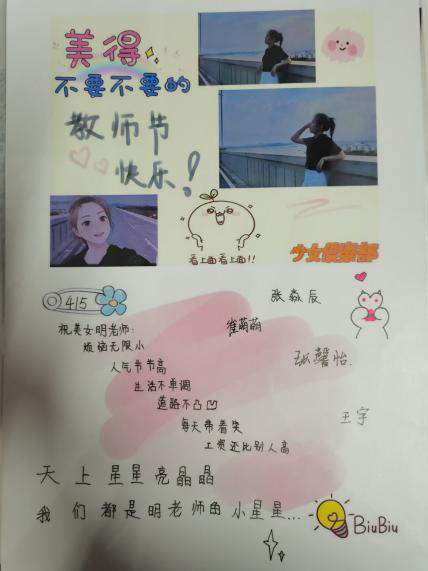 美得
不要不要的
教师节
快乐！
看上面看上面!!
少女俱楽部
415
张淼辰
祝美女明老师：
崔萌萌
烦恼无限小
张馨怡.
人气节节高
生活不单调
道路不凸凹
王宇
每天带着笑
工资还比别人高
天上星星亮晶晶
我们都是明老师的小星星...
BiuBiu